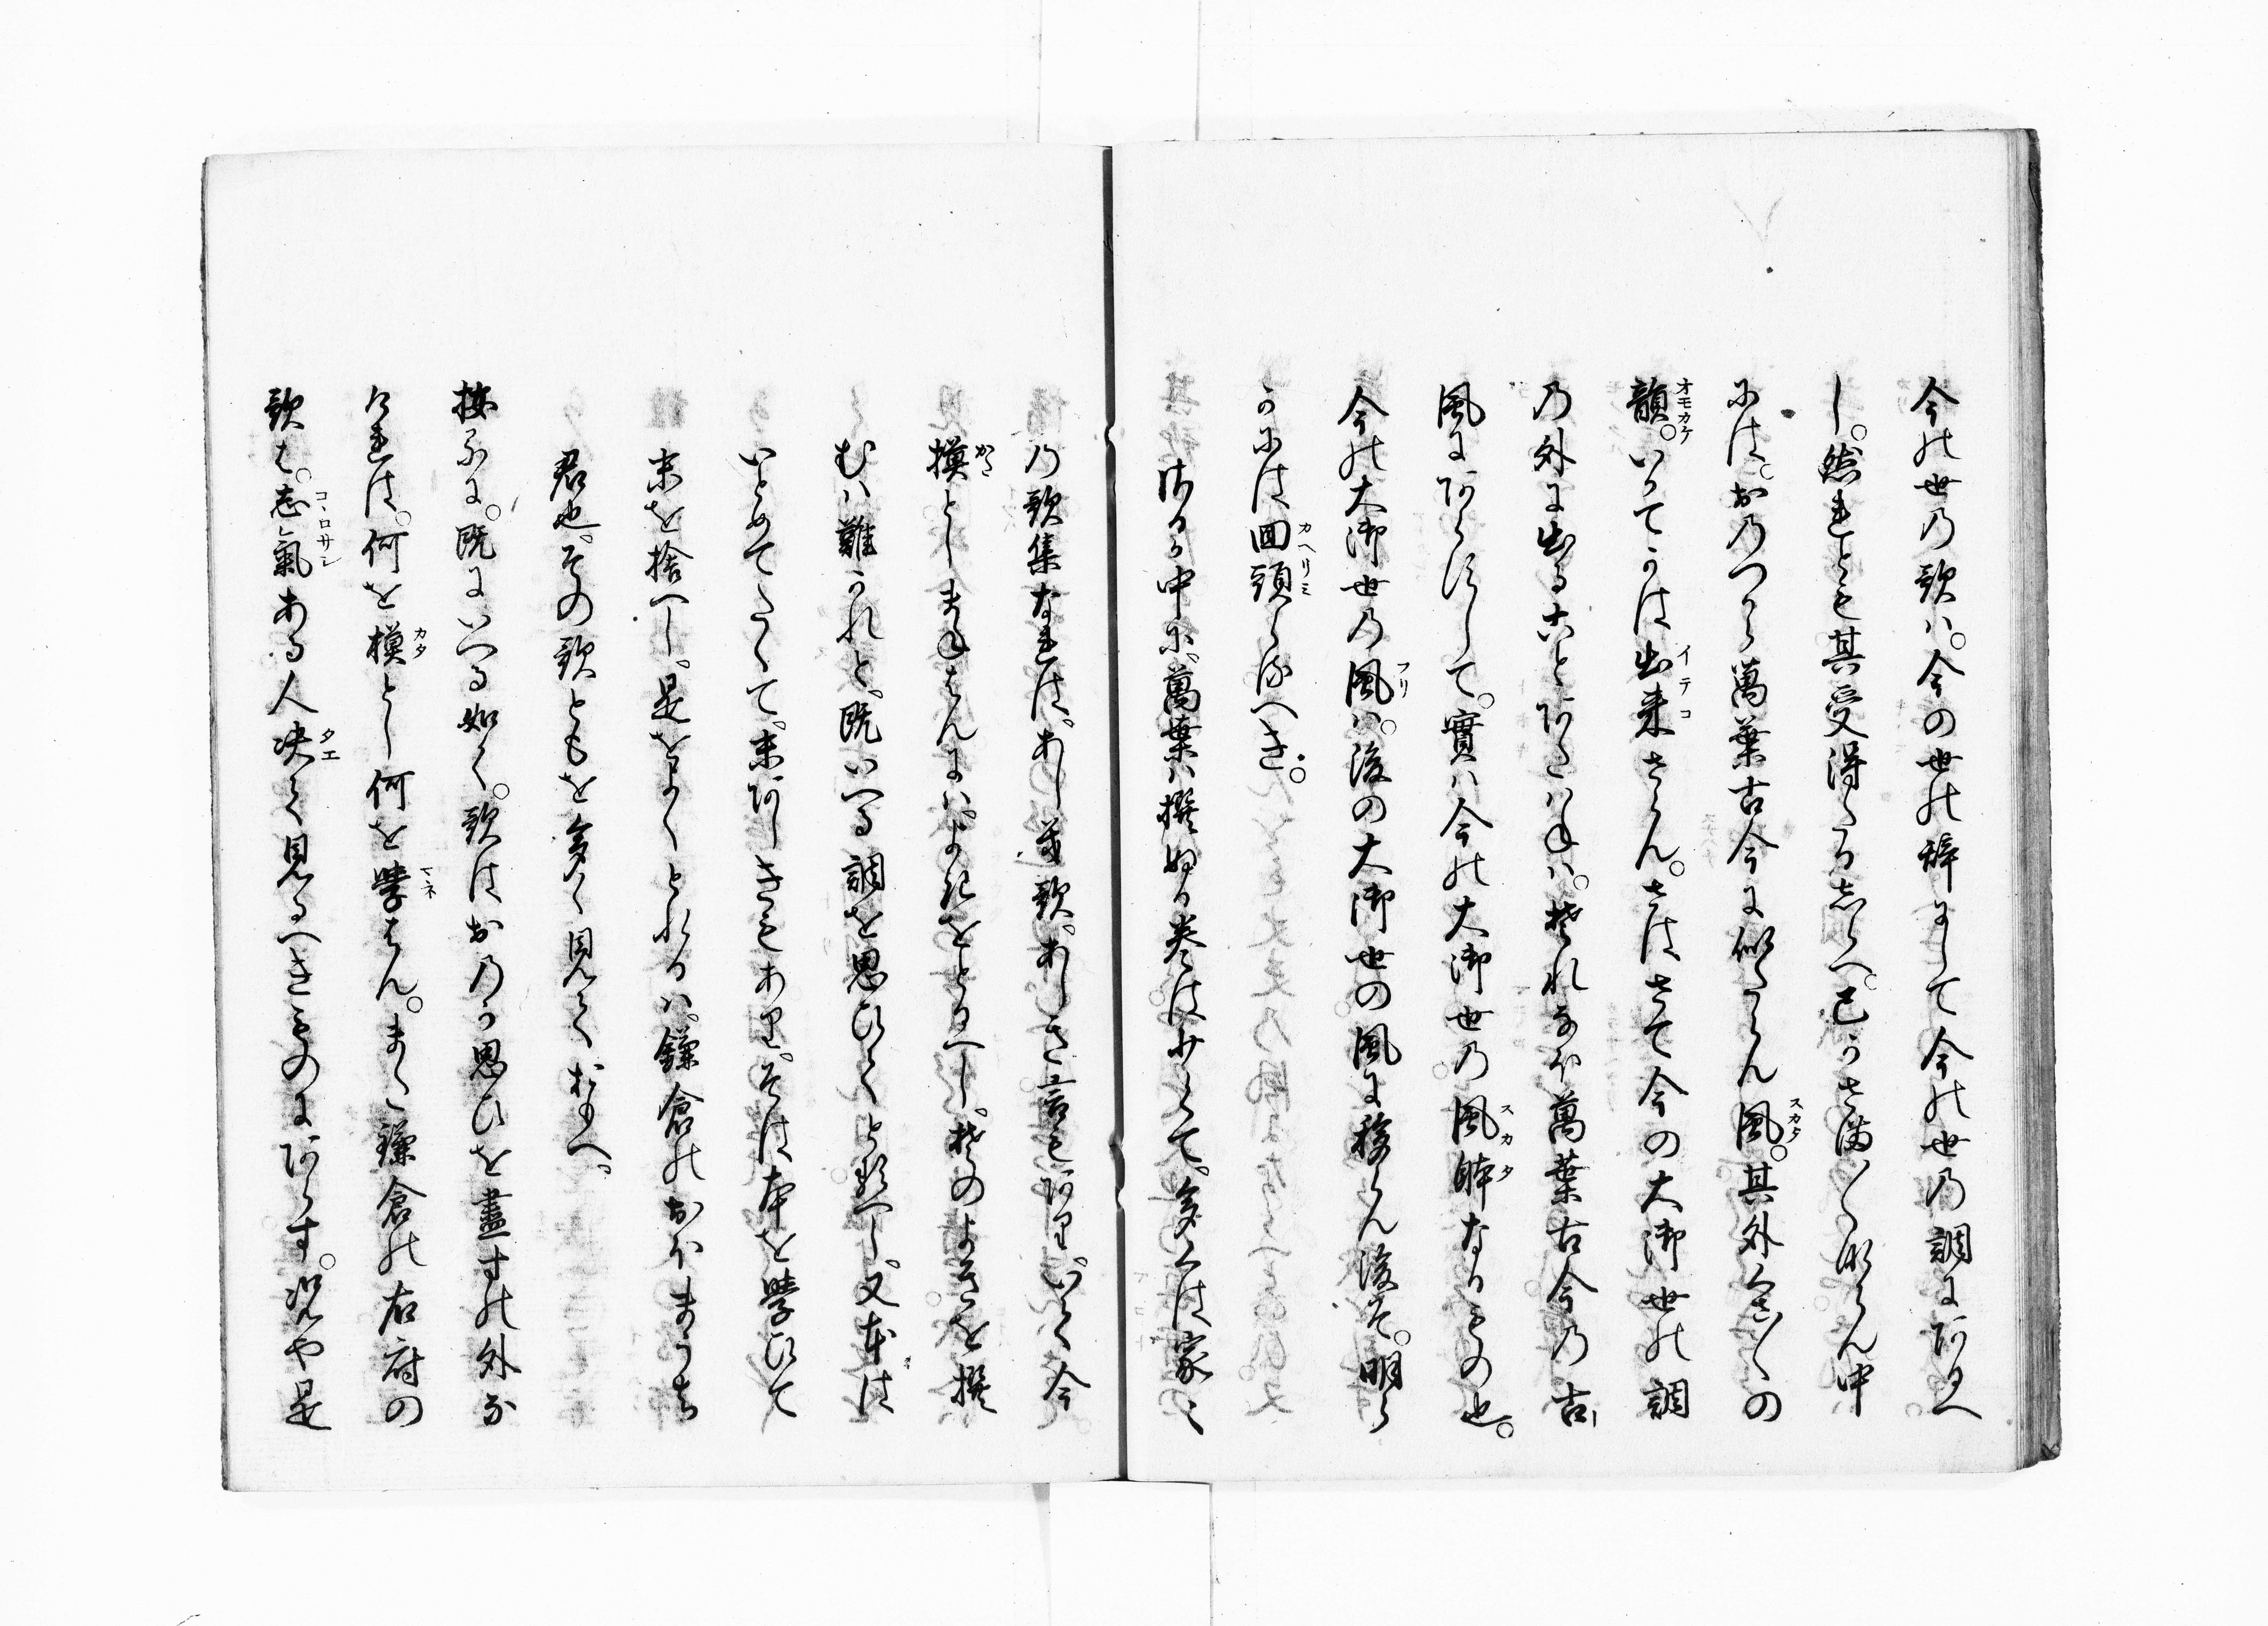 今の世の歌ハ。今の世の辞にして今の世の調にあるへ
し。然れとも其受得たる志らへ。己かさま〳〵ならん中
にハ。おのつから萬葉古今に似たらん風。其外くさ〳〵の
韻。いかてかは出来さらん。さはさて今の大御世の調
の外に出ることあたハねハ。それなほ萬葉古今の古
風にあらすして。實ハ今の大御世の風躰なるもの也。
今の大御世の風ハ。後の大御世の風に移らん後そ。明ら
かにハ回頭らるへき。
けるか中に。萬葉ハ撰める巻は少くて。多くは家々
の歌集なれは。あし き歌。あしき言もあり。いて今
模としまねはんにハ。よきをとるへし。そのよきを撰
むハ難かれと。既いへる調を思ひてとるへし。又本は
いとめてたくて。末あしきもあり。そは本を學ひて
末を捨へし。是をよくとれるハ。鎌倉のおほまうち
君也。その歌ともを多く見ておもへ。
按るに。既にいへる如く。歌はおのか思ひを盡すの外な
けれは。何を模とし何を學はん。また鎌倉の右府の
歌は。志氣ある人决て見るへきものにあらす。况や是